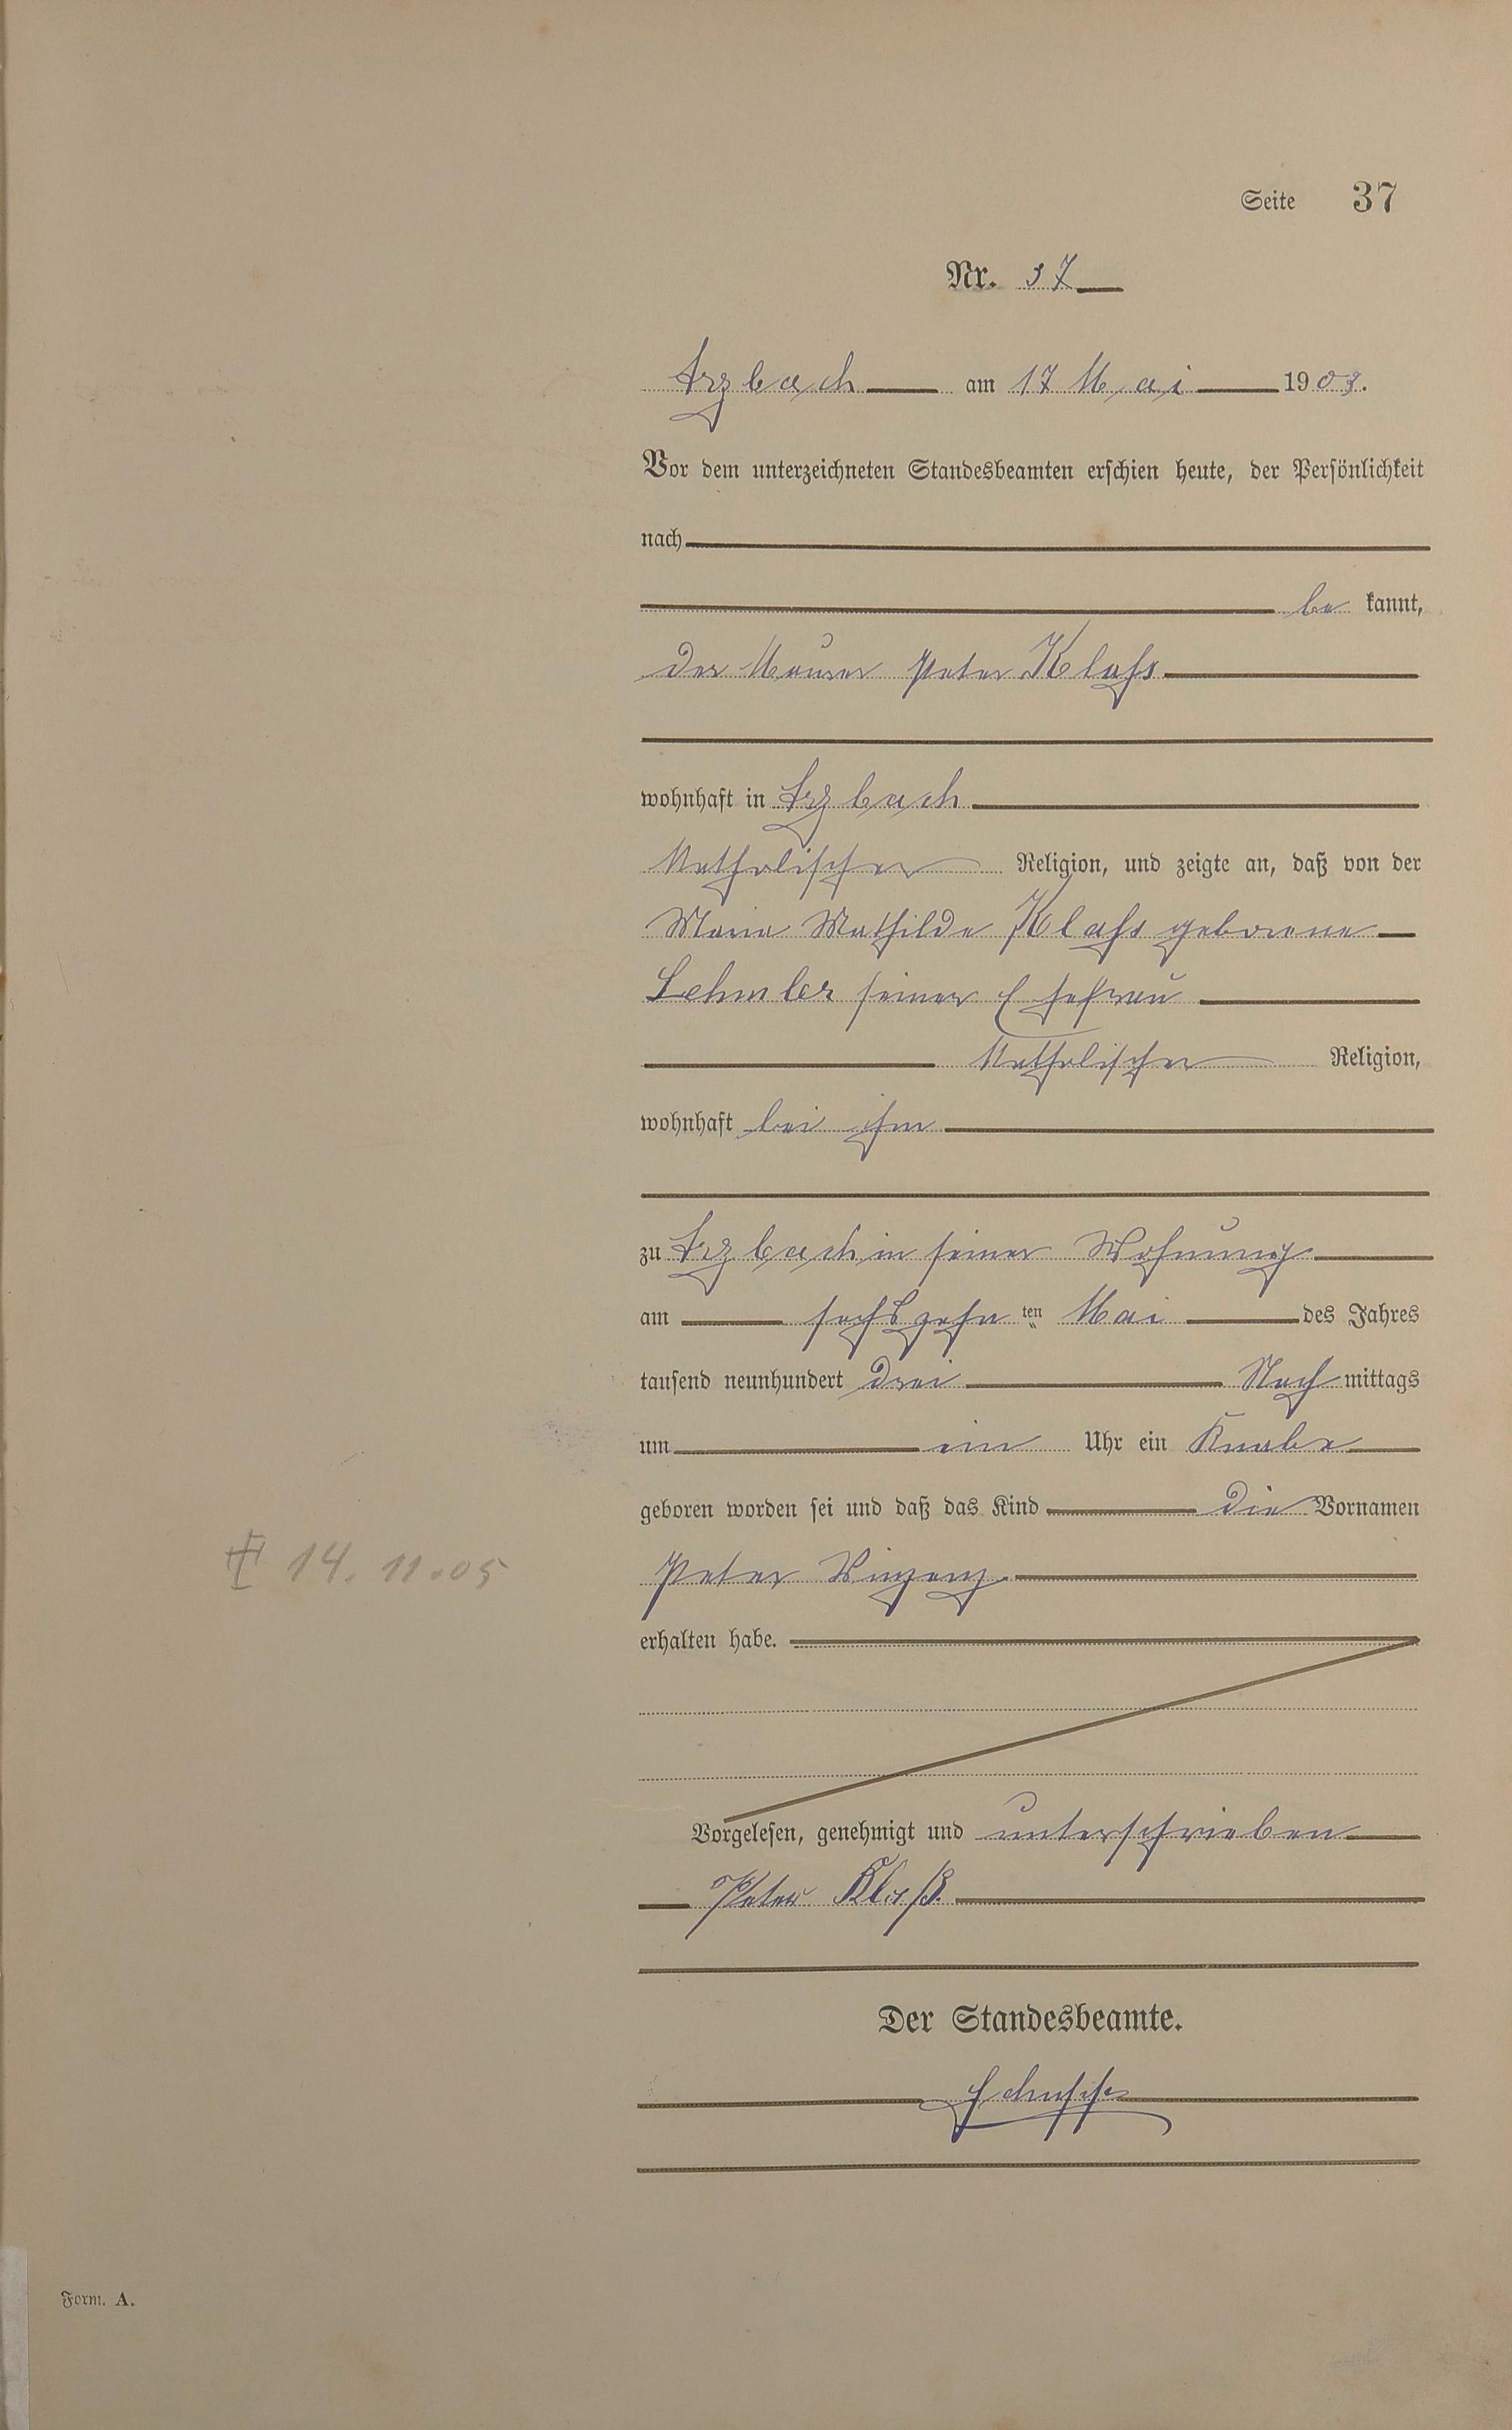 Seite 37
Nr. 37
Arzbach am 17 Mai 1903.
Vor dem unterzeichneten Standesbeamten erschien heute, der Persönlichkeit
nach
be kannt,
der Maurer Peter Klaß
wohnhaft in Arzbach
Katholischer Religion, und zeigte an, daß von der
Maria Mathilde Klaß geborene
Lehmler seiner Ehefrau
Katholischer Religion,
wohnhaft bei ihm
zu Arzbach in seiner Wohnung
am sechszehn ten Mai des Jahres
tausend neunhundert drei Nach mittags
um ein Uhr ein Knabe
geboren worden sei und daß das Kind die Vornamen
14.11.05
Peter Vinzenz
erhalten habe.
Vorgelesen, genehmigt und unterschrieben
Peter Klaß.
Der Standesbeamte.
Form. A.